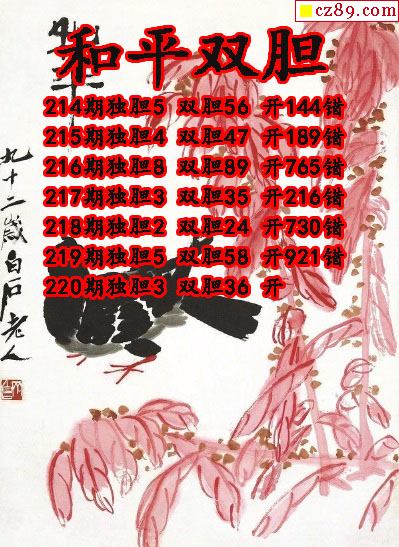 cz89.com
和平双胆
214期独胆5 双胆56 开144错
215期独胆4 双胆47 开189错
216期独胆8 双胆89 开765错
217期独胆3 双胆35 开216错
218期独胆2 双胆24 开730错
219期独胆5 双胆58 开921错
220期独胆3 双胆36 开
九十二岁白石老人